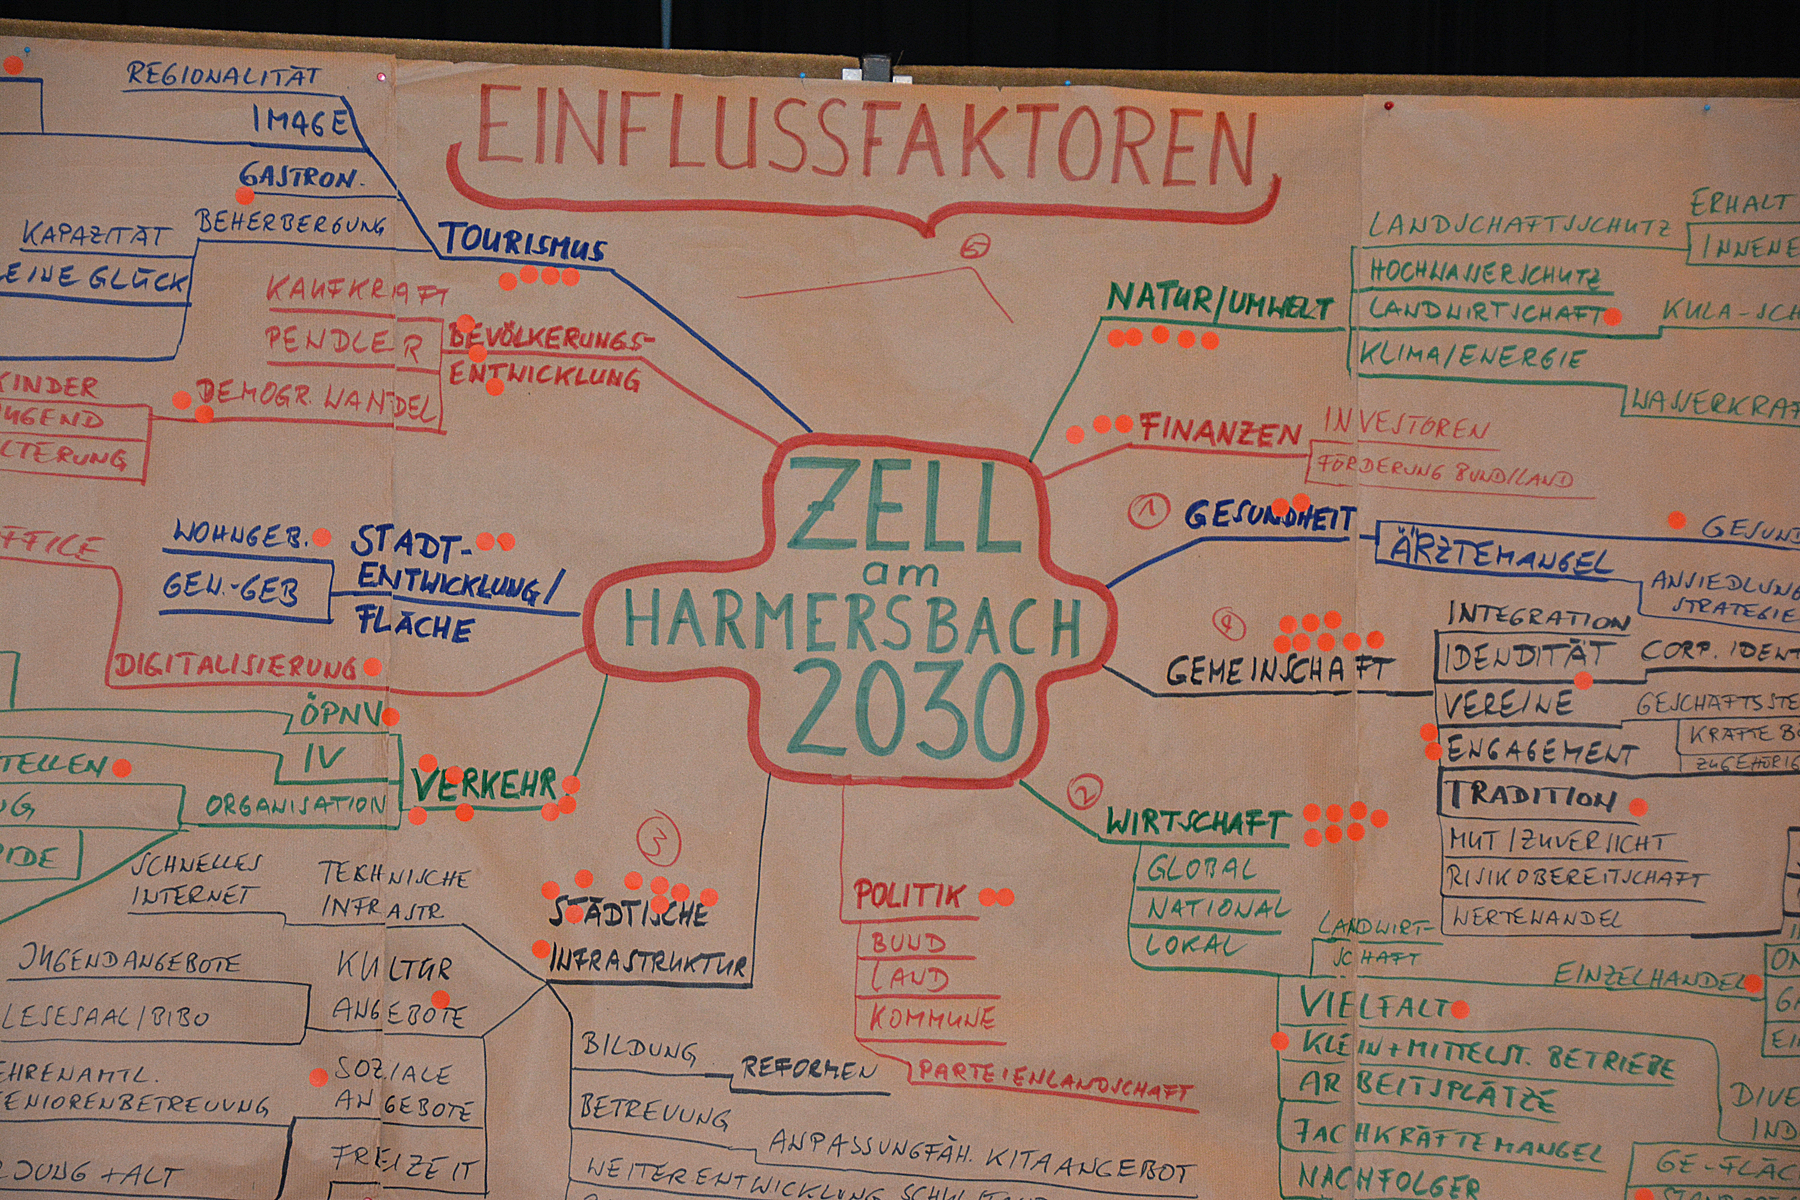 EINFLUSSFAKTOREN
5
ZELL
am
HARMERSBACH
2030
REGIONALITÄT
IMAGE
GASTRON.
BEHERBERGUNG
KAPAZITÄT
EINE GLÜCK
TOURISMUS
KAUFKRAFT
PENDLER
DEMOGR. WANDEL
BEVÖLKERUNGS-
ENTWICKLUNG
KINDER
JUGEND
LTERUNG
WOHNGEB.
GEW.-GEB
STADT-
ENTWICKLUNG/
FLÄCHE
FFICE
DIGITALISIERUNG
ÖPNV
IV
ORGANISATION
VERKEHR
TELLEN
UG
IDE
3
STÄDTISCHE
INFRASTRUKTUR
TECHNISCHE
INFRASTR.
SCHNELLES
INTERNET
KULTUR
ANGEBOTE
JUGENDANGEBOTE
LESESAAL/BIBO
SOZIALE
ANGEBOTE
EHRENAMTL.
ENIORENBETREUUNG
FREIZEIT
DUNG + ALT
BILDUNG
REFORMEN
BETREUUNG
ANPASSUNGFÄH. KITAANGEBOT
WEITERENTWICKLUNG
POLITIK
BUND
LAND
KOMMUNE
PARTEIENLANDSCHAFT
NATUR/UMWELT
LANDSCHAFTSSCHUTZ
ERHALT
INNENE
HOCHWASSERSCHUTZ
LANDWIRTSCHAFT
KULA-SCH
KLIMA/ENERGIE
WASSERKRAF
FINANZEN
INVESTOREN
FÖRDERUNG BUND/LAND
1
GESUNDHEIT
GESUN
ÄRZTEMANGEL
ANSIEDLUNG
STRATEGIE
4
GEMEINSCHAFT
INTEGRATION
IDENDITÄT
CORP. IDENT
VEREINE
GESCHÄFTSSTE
KRÄFTE BÜ
ZUGEHÖRIG
ENGAGEMENT
TRADITION
MUT/ZUVERSICHT
RISIKOBEREITSCHAFT
WERTEWANDEL
2
WIRTSCHAFT
GLOBAL
NATIONAL
LOKAL
LANDWIRT-
SCHAFT
EINZELHANDEL
ON
GA
EI
VIELFALT
KLEIN + MITTELST. BETRIEBE
ARBEITSPLÄTZE
DIVE
IND
FACHKRÄFTEMANGEL
NACHFOLGER
GE-FLÄC